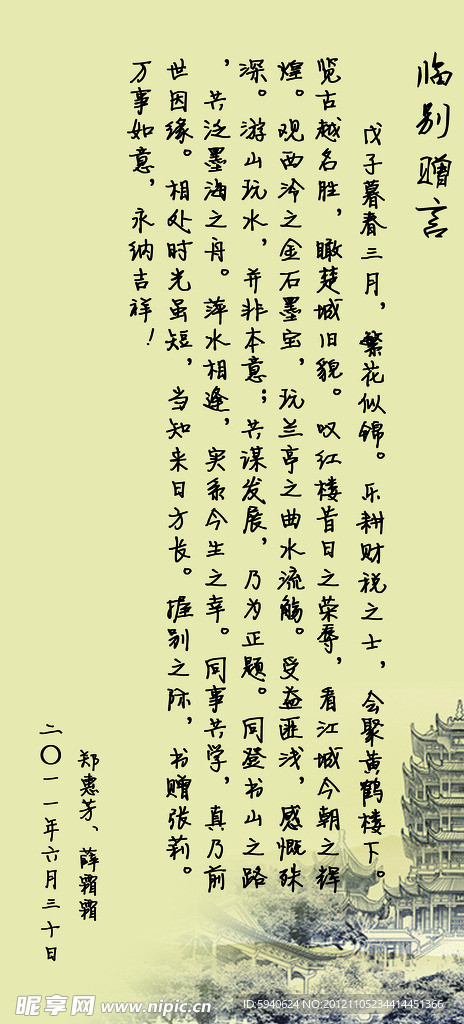 临别赠言
戊子暮春三月，繁花似锦。乐耕财税之士，会聚黄鹤楼下。
览古越名胜，瞰楚城旧貌。叹红楼昔日之荣辱，看江城今朝之辉
煌。观西泠之金石墨宝，玩兰亭之曲水流觞。受益匪浅，感慨殊
深。游山玩水，并非本意；共谋发展，乃为正题。同登书山之路
，共泛墨海之舟。萍水相逢，实系今生之幸。同事共学，真乃前
世因缘。相处时光虽短，当知来日方长。握别之际，书赠张莉。
万事如意，永纳吉祥！
郑惠芳、薛霜霜
二〇一一年六月三十日
昵享网 www.nipic.cn
ID:5940624 NO:20121105234414451366